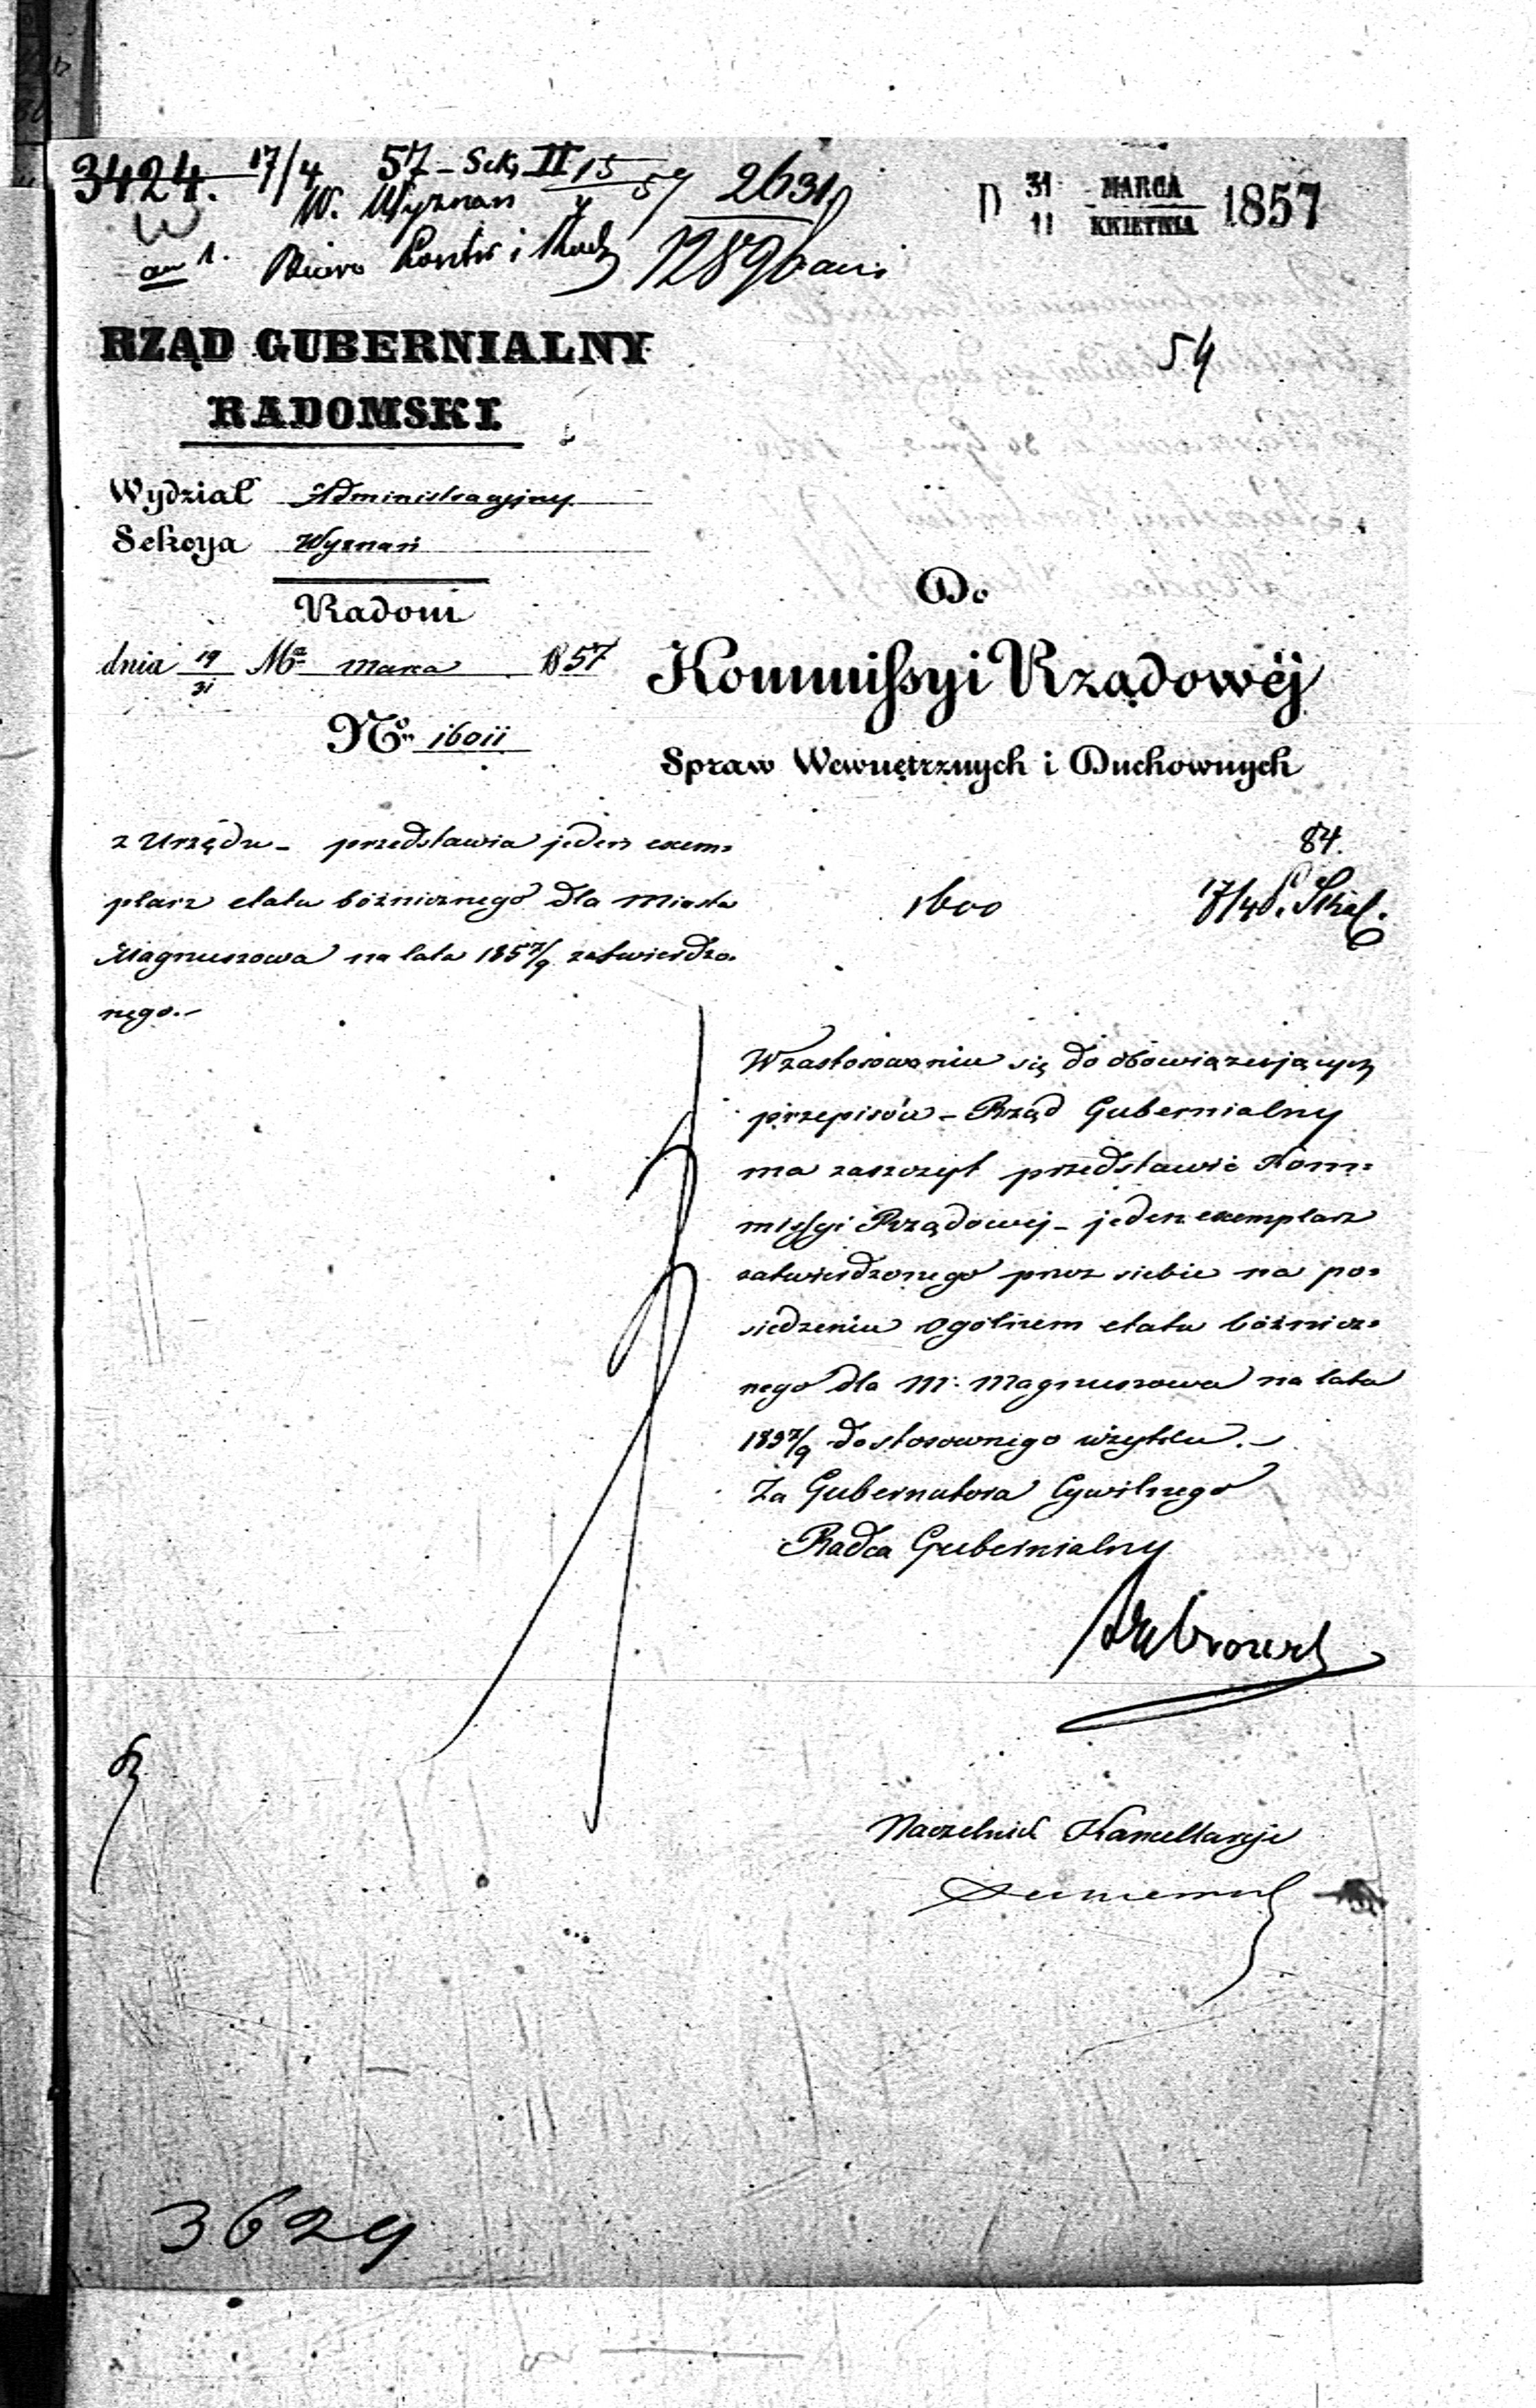 3424. 17/4 57 - Sek, II 15
W. Wyznan
2631
an 1. Biuro Kontr i
12896
D 31 MARCA 1857
11 KWIETNIA
54
RZĄD GUBERNIALNY
RADOMSKI
Wydział Administracyjny
Sekcya Wyznań
Radom
dnia 19/31 Ma Marca 1857
No 16011
Do
Kommissyi Rządowéj
Spraw Wewnętrznych i Duchownych
z Urzędu - przedstawia jeden exem=
plarz etatu bóżnicznego dla Miasta
Magnuszewa na lata 1857/9 zatwierdzo=
nego.-
84.
1600
17/4
Wzastosowaniu się do obowiązujących
przepisów - Rząd Gubernialny
ma zaszczyt przedstawić Kom=
missyi Rządowej - jeden exemplarz
zatwierdzonego przez siebie na po=
siedzeniu Ogólnem etatu bóżnicz=
nego dla M. Magnuszewa na lata
1857/9 do stosownego użytku. -
Za Gubernatora Cywilnego
Radca Gubernialny
Naczelnik Kancellaryi
3629